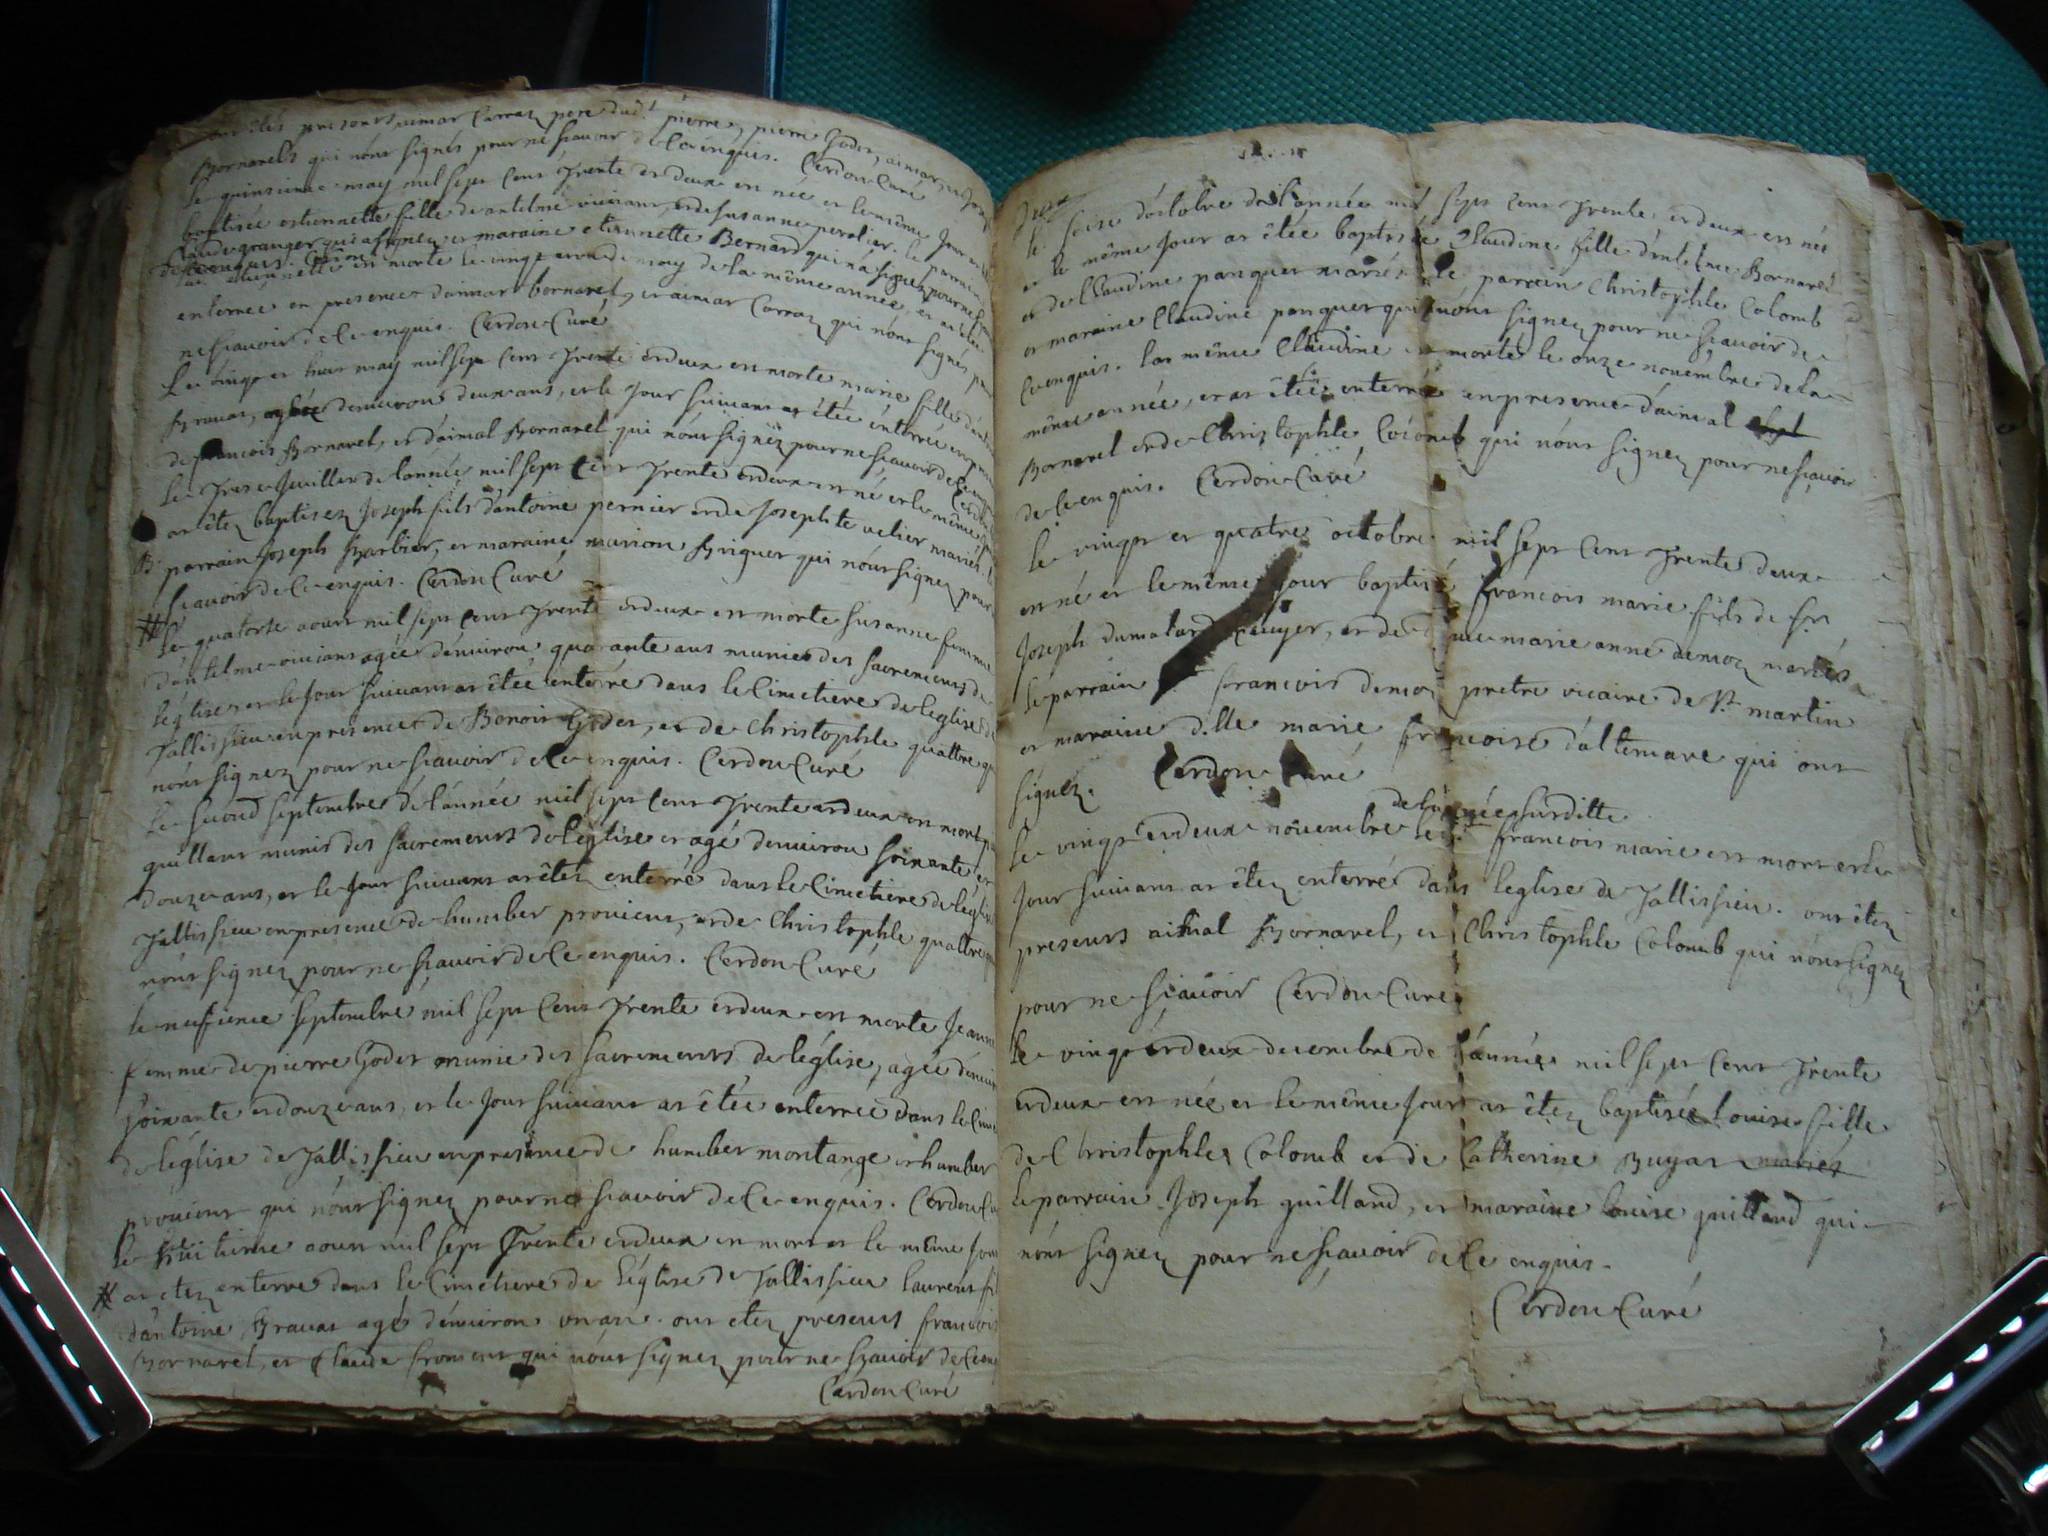 ont étés presents aimar Carraz pere dud.t pierre, pierre Goder, aimar
Bornarels qui nont signés pour ne sçavoir de ce enquis. Cerdon Curé
le quinsieme may mil sept cent Trente et deux est née et le même Jour
baptisée estiennette fille de antelme viviant, et de susanne perolier. le parrain
Claude granger qui a signez et maraine etiennette Bernard qui n'a signez pour ne
de ce enquis. Cerdon Curé
est morte le vingt may de la même année, et at étée
enterree en presence daimar bornarel, et aimar Carraz qui nont signés, pour
ne sçavoir de ce enquis. Cerdon Curé
Le vingt et huit may mil sept cent Trente et deux est morte marie fille
Bravat, agée denviron deux ans, et le Jour suivant at étée enterrée en
de francois Bornarel, et d'aimal Bornarel qui nont signéz pour ne sçavoir de ce
le Juillet de lannée mil sept cent Trente et deux est né et le même
at êtez baptisez Joseph fils d'antoine pernier et de Josephte velier mariés
parrain Joseph Barbier, et maraine marion Briguer qui nont signez pour
sçavoir de ce enquis. Cerdon Curé
# le quatorse aoust mil sept cent Trente et deux est morte susanne femme
d'antelme viviant agée denviron quarante ans munies des sacrements de
léglise, et le Jour suivant at êtée enterré dans le Cimetiere de leglise de
Tallissieu en presence de Benoit Goder, et de Christophle quattre
nont signez pour ne sçavoir de ce enquis. Cerdon Curé
le second septembre de lannée mil sept cent Trente et deux est mort
guillant munis des sacrements de leglise et agé denviron soixante et
douze ans, et le Jour suivant at êtez enterré dans le Cimetiere de léglise
Tallissieu en presence de humber provient, et de Christophle quattre
nont signez pour ne sçavoir de ce enquis. Cerdon Curé
le neufieme septembre mil sept cent Trente et deux est morte Jeanne
femme de pierre Goder munie des sacrements de léglise, agée
soixante et douze ans, et le Jour suivant at êtée enterree dans le
de léglise de Tallissieu en presence de humber montange et humber
provient qui nont signez pour ne sçavoir de ce enquis. Cerdon
le huitieme aoust mil sept Trente et deux est mort et le même Jour
# at etez enterré dans le Cimetiere de léglise de Tallissieu laurent
d'antoine Bravat agé denviron un an. ont etez présents francois
Bornarel, et Claude froment qui nont signez pour ne sçavoir de ce
Cerdon Curé
le seise d'octobre de l'année mil sept cent Trente et deux est née
et le même Jour at êtée baptisée Claudine fille d'antelme Bornarel
et de Claudine panquer mariés. le parrain Christophle Colomb
et maraine Claudine panquer qui nont signez pour ne sçavoir de
ce enquis. la même Claudine est morte le onze novembre de la
même année, et at êtée enterré en presence d'aimal
Bornarel et de Christophle Colomb qui nont signez pour ne sçavoir
de ce enquis. Cerdon Curé
le vingt et quatre octobre mil sept cent Trente deux
est né et le même Jour baptisé francois marie fils de sr
Joseph dumalard Ecuyer, et de marie anne demoz mariés
le parrain francois demoz pretre vicaire de St martin
et maraine d.lle marie francoise d'altemare qui ont
signéz. Cerdon Curé
de l'année surditte
le vingt et deux novembre led.t francois marie est mort et le
Jour suivant at êtez enterré dans leglise de Tallissieu. ont êtez
presents aimal Bornarel, et Christophle Colomb qui nont signez
pour ne sçavoir Cerdon Curé
le vingt et deux decembre de l'année mil sept cent Trente
et deux est née et le même Jour at êtez baptisée louise fille
de Christophle Colomb et de Catherine Buyat mariés
le parrain Joseph guilland, et maraine louise guilland qui
nont signez pour ne sçavoir de ce enquis.
Cerdon Curé